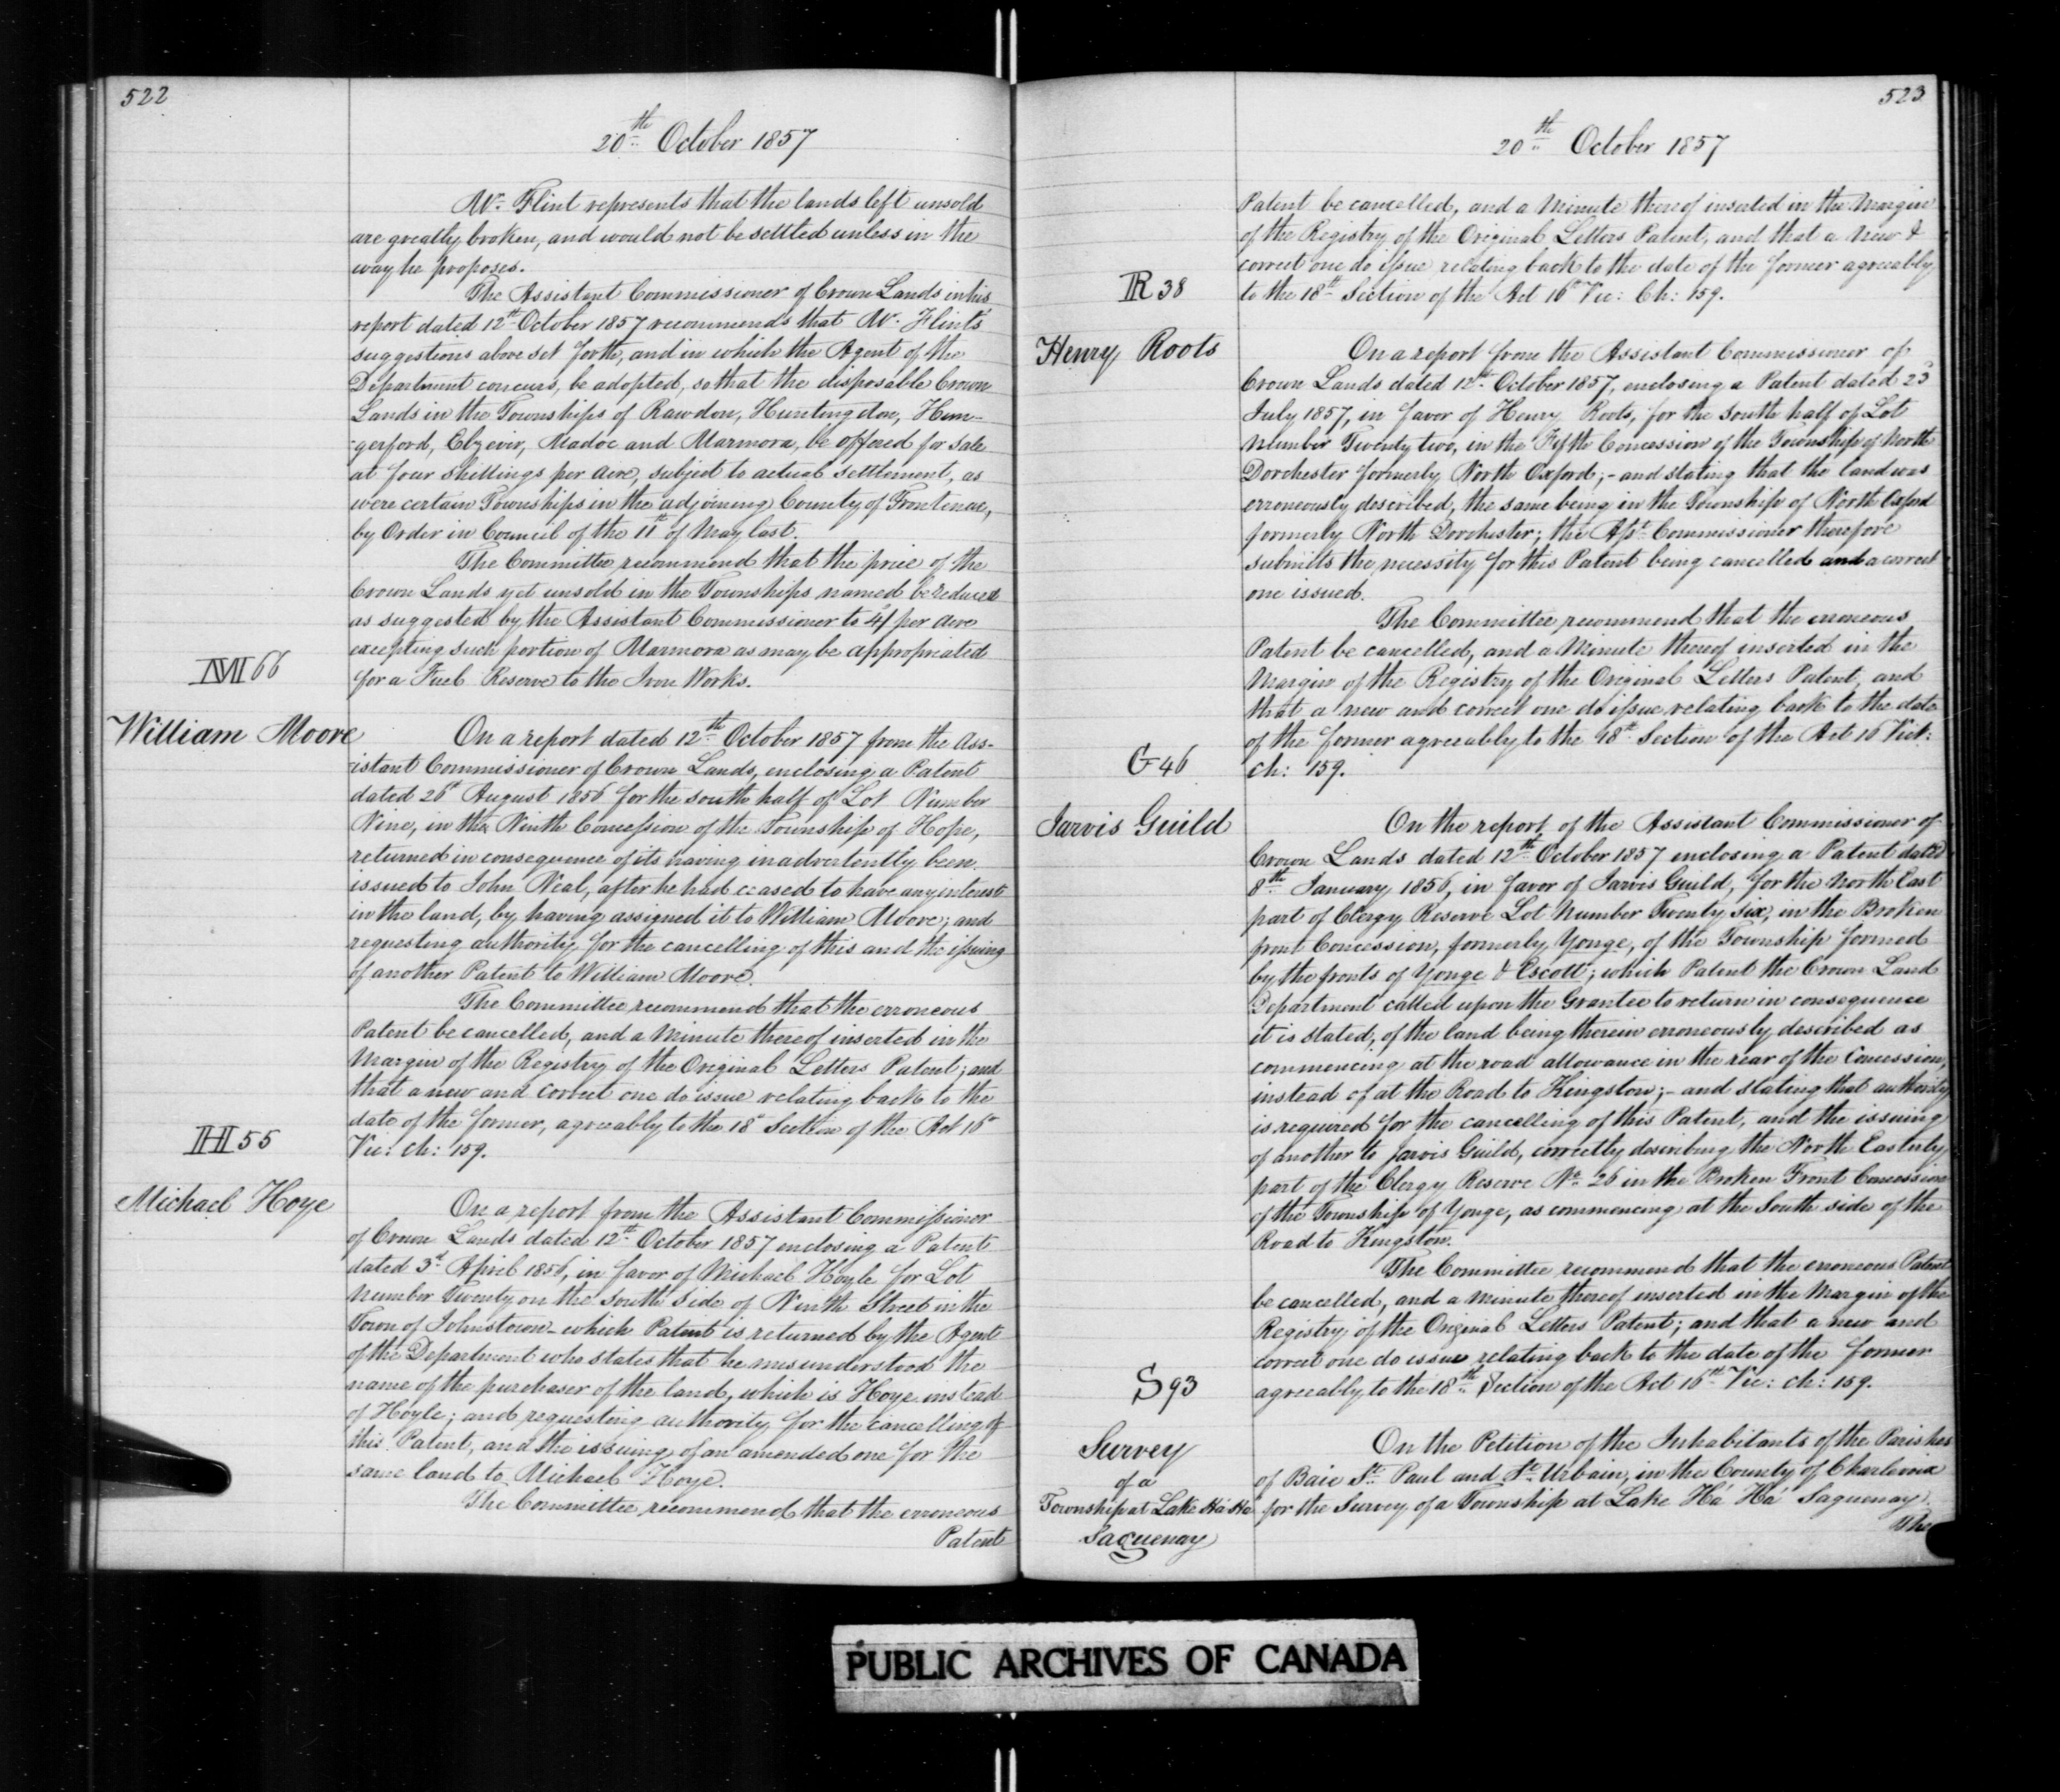 522
20th October 1857
Mr. Flint represents that the lands left unsold
are greatly broken, and would not be settled unless in the
way he proposes.
The Assistant Commissioner of Crown Lands in his
report dated 12th October 1857 recommends that Mr. Flint's
suggestions above set forth, and in which the Agent of the
Department concurs, be adopted, so that the disposable Crown
Lands in the Townships of Rawdon, Huntingdon, Hun-
-gerford, Elzevir, Madoc and Marmora, be offered for sale
at four shillings per acre, subject to actual settlement, as
were certain Townships in the adjoining County of Frontenac,
by Order in Council of the 11th of May last.
The Committee recommend that the price of the
Crown Lands yet unsold in the Townships named be reduced
as suggested by the Assistant Commissioner to 4/ per acre
excepting such portion of Marmora as may be appropriated
for a Fuel Reserve to the Iron Works.
M 66
William Moore
On a report dated 12th October 1857 from the Ass-
-istant Commissioner of Crown Lands, enclosing a Patent
dated 26th August 1856 for the south half of Lot Number
Nine, in the Ninth Concession of the Township of Hope,
returned in consequence of its having inadvertently been
issued to John Neal, after he had ceased to have any interest
in the land, by having assigned it to William Moore; and
requesting authority for the cancelling of this and the issuing
of another Patent to William Moore.
The Committee recommend that the erroneous
Patent be cancelled, and a Minute thereof inserted in the
Margin of the Registry of the Original Letters Patent; and
that a new and correct one do issue relating back to the
date of the former, agreeably to the 18th Section of the Act 16th
Vic: ch: 159.
H 55
Michael Hoye
On a report from the Assistant Commissioner
of Crown Lands dated 12th October 1857 enclosing a Patent
dated 3d April 1856, in favor of Michael Hoyle for Lot
Number Twenty on the South Side of Ninth Street in the
Town of Johnstown - which Patent is returned by the Agent
of the Department who states that he misunderstood the
name of the purchaser of the land, which is Hoye instead
of Hoyle; and requesting authority for the cancelling of
this Patent, and the issuing of an amended one for the
same land to Michael Hoye.
The Committee recommend that the erroneous
Patent
523
20th October 1857
Patent be cancelled, and a Minute thereof inserted in the Margin
of the Registry of the Original Letters Patent, and that a New &
correct one do issue relating back to the date of the former agreeably
to the 18th Section of the Act 16th Vic: Ch: 159.
R 38
Henry Roots
On a report from the Assistant Commissioner of
Crown Lands dated 12th October 1857, enclosing a Patent dated 23d
July 1857, in favor of Henry Roots, for the South half of Lot
Number Twenty two, in the Fifth Concession of the Township of North
Dorchester formerly North Oxford; - and stating that the land was
erroneously described, the same being in the Township of North Oxford
formerly North Dorchester; the Asst Commissioner therefore
submits the necessity for this Patent being cancelled and a correct
one issued.
The Committee recommend that the erroneous
Patent be cancelled, and a Minute thereof inserted in the
Margin of the Registry of the Original Letters Patent, and
that a new and correct one do issue relating back to the date
of the former agreeably to the 18th Section of the Act 16 Vict:
ch: 159.
G 46
Jarvis Guild
On the report of the Assistant Commissioner of
Crown Lands dated 12th October 1857 enclosing a Patent dated
8th January 1856, in favor of Jarvis Guild, for the North East
part of Clergy Reserve Lot Number Twenty Six, in the Broken
front Concession, formerly Yonge, of the Township formed
by the fronts of Yonge & Escott; which Patent the Crown Land
Department called upon the Grantee to return in consequence
it is stated, of the land being therein erroneously described as
commencing at the road allowance in the rear of the Concession,
instead of at the Road to Kingston; - and stating that authority
is required for the cancelling of this Patent, and the issuing
of another to Jarvis Guild, correctly describing the North Easterly
part of the Clergy Reserve No. 26 in the Broken Front Concession
of the Township of Yonge, as commencing at the South side of the
Road to Kingston.
The Committee recommend that the erroneous Patent
be cancelled, and a minute thereof inserted in the Margin of the
Registry of the Original Letters Patent; and that a new and
correct one do issue relating back to the date of the former
agreeably to the 18th Section of the Act 16th Vic: ch: 159.
S 93
Survey
of a
Township at Lake Há Há
Saguenay
On the Petition of the Inhabitants of the Parishes
of Baie St. Paul and St. Urbain, in the County of Charlevoix
for the Survey of a Township at Lake Há Há Saguenay.
The
PUBLIC ARCHIVES OF CANADA